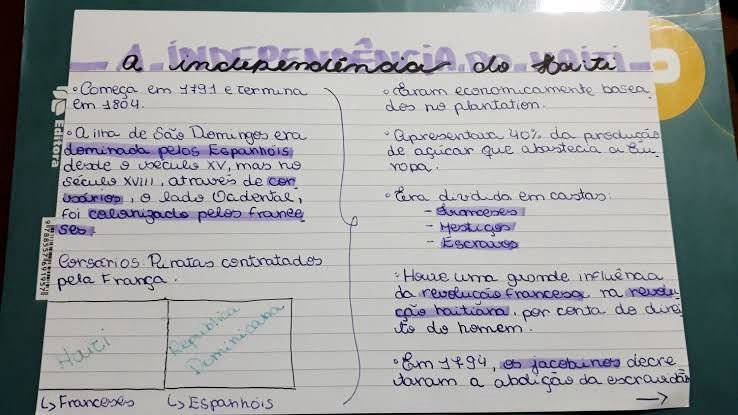 A independência do Haiti
• Começa em 1791 e termina
em 1804.
• A ilha de São Domingos era
dominada pelos Espanhóis
desde o século XV, mas no
século XVIII, através de cor
sários, o lado Ocidental,
foi colonizado pelos france
ses.
Corsários: Piratas contratados
pela França.
Haiti
República
Dominicana
↳ Franceses
↳ Espanhóis
• Eram economicamente basea
dos no plantation.
• Apresentava 40% da produção
de açúcar que abastecia a Eu
ropa.
• Era dividida em castas:
- Franceses
- Mestiços
- Escravos
• Houve uma grande influência
da revolução francesa na revolu
ção haitiana, por conta do direi
to do homem.
• Em 1794, os jacobinos decre
taram a abolição da escravidão
→
Editora